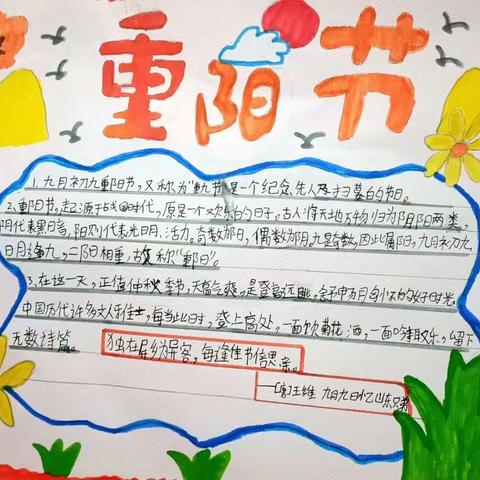 重阳节
1.九月初九重阳节，又称为"重九节"是一个纪念先人及扫墓的节日。
2.重阳节，起源于战国时代，原是一个欢乐的日子。古人将天地万物归为阴阳两类，
阴代表黑暗，阳则代表光明、活力。奇数为阳，偶数为阴，九是奇数，因此属阳，九月初九，
日月逢九，二阳相重，故称"重阳"。
3.在这一天，正值仲秋季节，天高气爽，是登高远眺，舒
中国历代许多文人雅士，每当此时，登上高处，一面饮菊花酒，一面吟诗取乐，留下
无数诗篇。
独在异乡为异客，每逢佳节倍思亲。
[唐]王维 九月九日忆山东兄弟